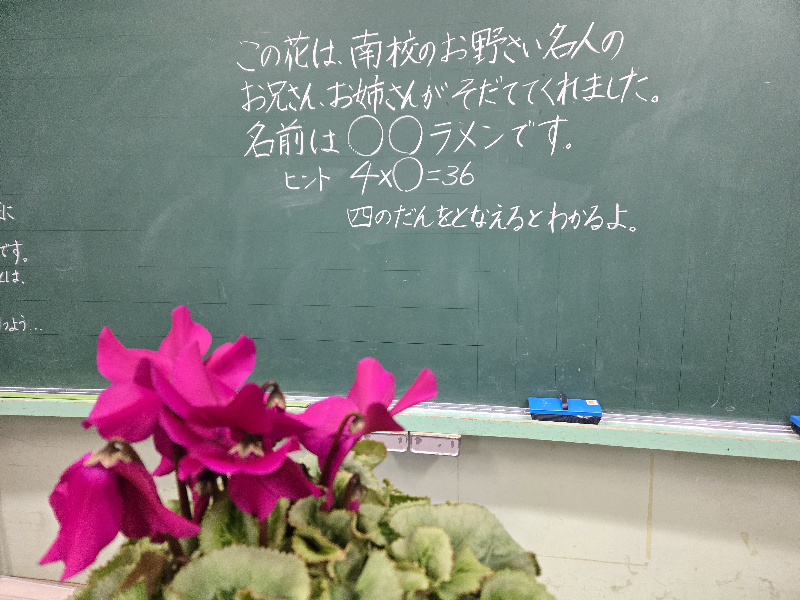 この花は、南校のお野さい名人の
お兄さん、お姉さんがそだててくれました。
名前は〇〇ラメンです。
ヒント 4×〇=36
四のだんをとなえるとわかるよ。
に
です。
とは、
よう...